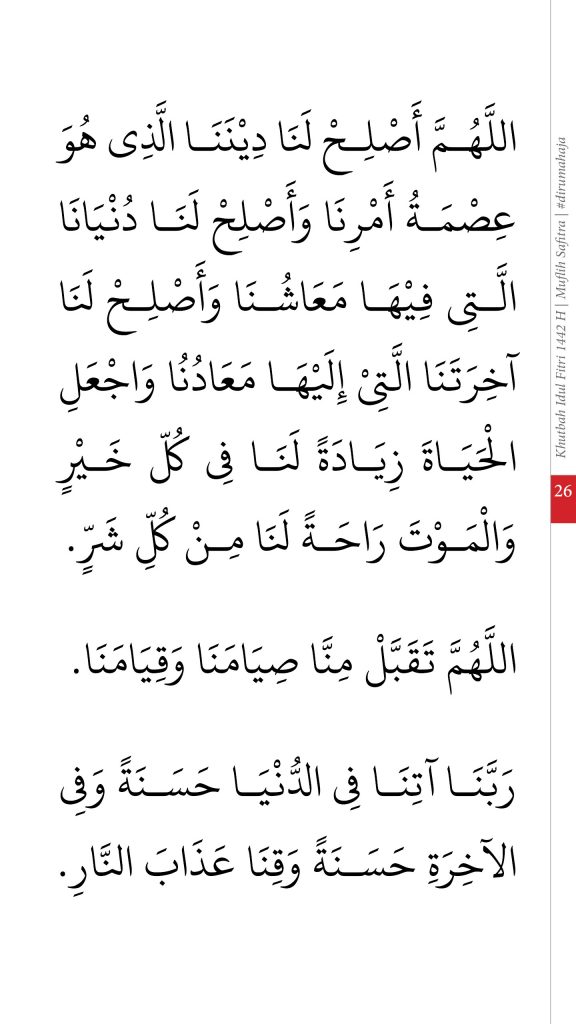 اللَّهُمَّ أَصْلِحْ لَنَا دِيْنَنَا الَّذِى هُوَ
عِصْمَةُ أَمْرِنَا وَأَصْلِحْ لَنَا دُنْيَانَا
الَّتِى فِيْهَا مَعَاشُنَا وَأَصْلِحْ لَنَا
آخِرَتَنَا الَّتِىْ إِلَيْهَا مَعَادُنُا وَاجْعَلِ
الْحَيَاةَ زِيَادَةً لَنَا فِى كُلّ خَيْرٍ
وَالْمَوْتَ رَاحَةً لَنَا مِنْ كُلِّ شَرٍّ.
اللَّهُمَّ تَقَبَّلْ مِنَّا صِيَامَنَا وَقِيَامَنَا.
رَبَّنَا آتِنَا فِى الدُّنْيَا حَسَنَةً وَفِى
الآخِرَةِ حَسَنَةً وَقِنَا عَذَابَ النَّارِ.
Khutbah Idul Fitri 1442 H | Muflih Safitra | #dirumahaja
26